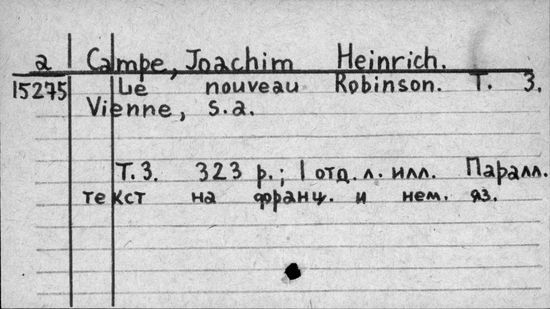 a Campe, Joachim Heinrich.
15275 Le nouveau Robinson. T. 3.
Vienne, s.a.
T.3. 323 p.; 1 отд. л. илл. Паралл.
текст на франц. и нем. яз.